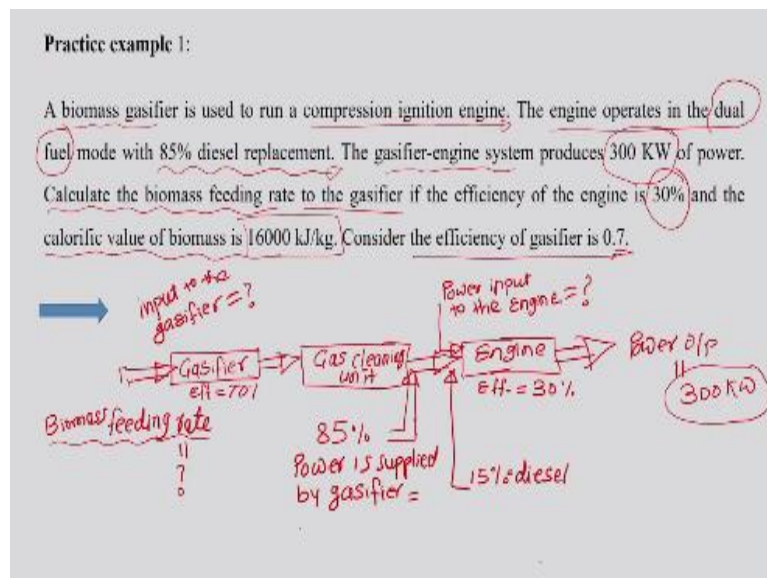 Practice example 1:
A biomass gasifier is used to run a compression ignition engine. The engine operates in the dual
fuel mode with 85% diesel replacement. The gasifier-engine system produces 300 KW of power.
Calculate the biomass feeding rate to the gasifier if the efficiency of the engine is 30% and the
calorific value of biomass is 16000 kJ/kg. Consider the efficiency of gasifier is 0.7.
input to the
gasifier = ?
Power input
to the Engine = ?
Gasifier
Eff = 70%
Gas cleaning
unit
Engine
Eff. = 30%
Power O/P
=
300 KW
Biomass feeding rate
=
?
85%
Power is supplied
by gasifier =
15% diesel